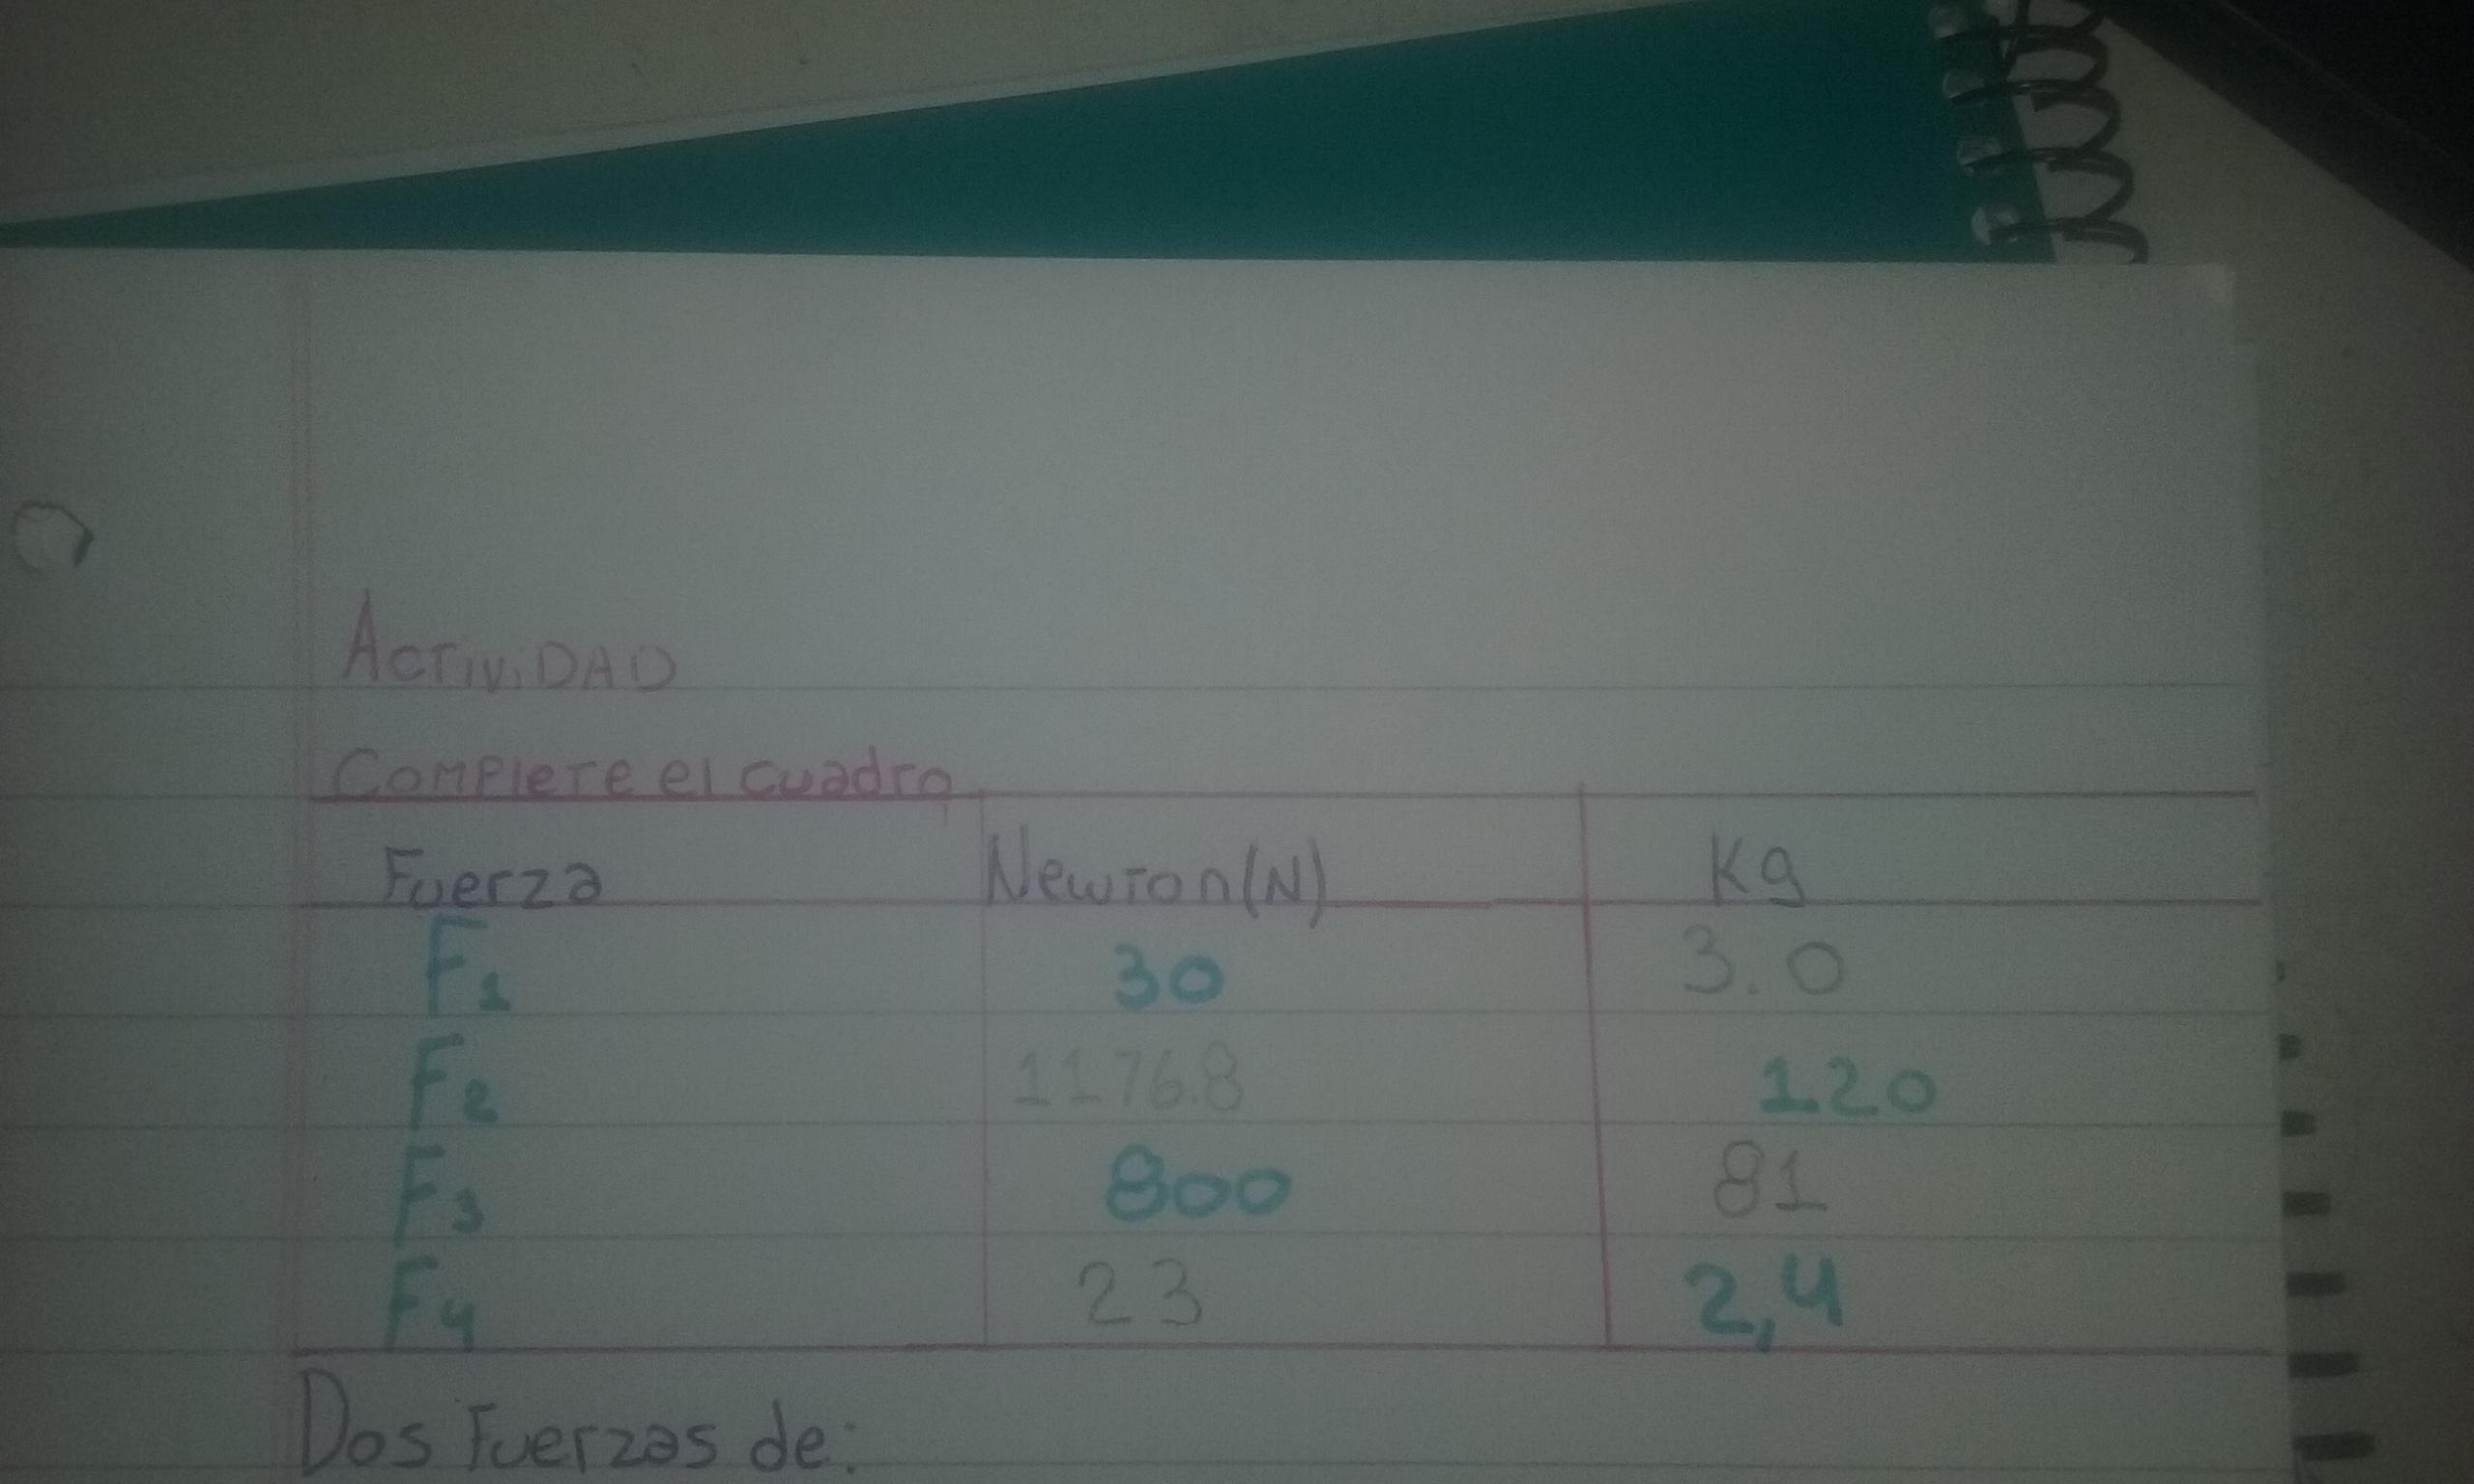 ActiviDAD
Complete el cuadro
Fuerza Newton(N) Kg
F1 30 3.0
F2 1176.8 120
F3 800 81
F4 23 2,4
Dos Fuerzas de: